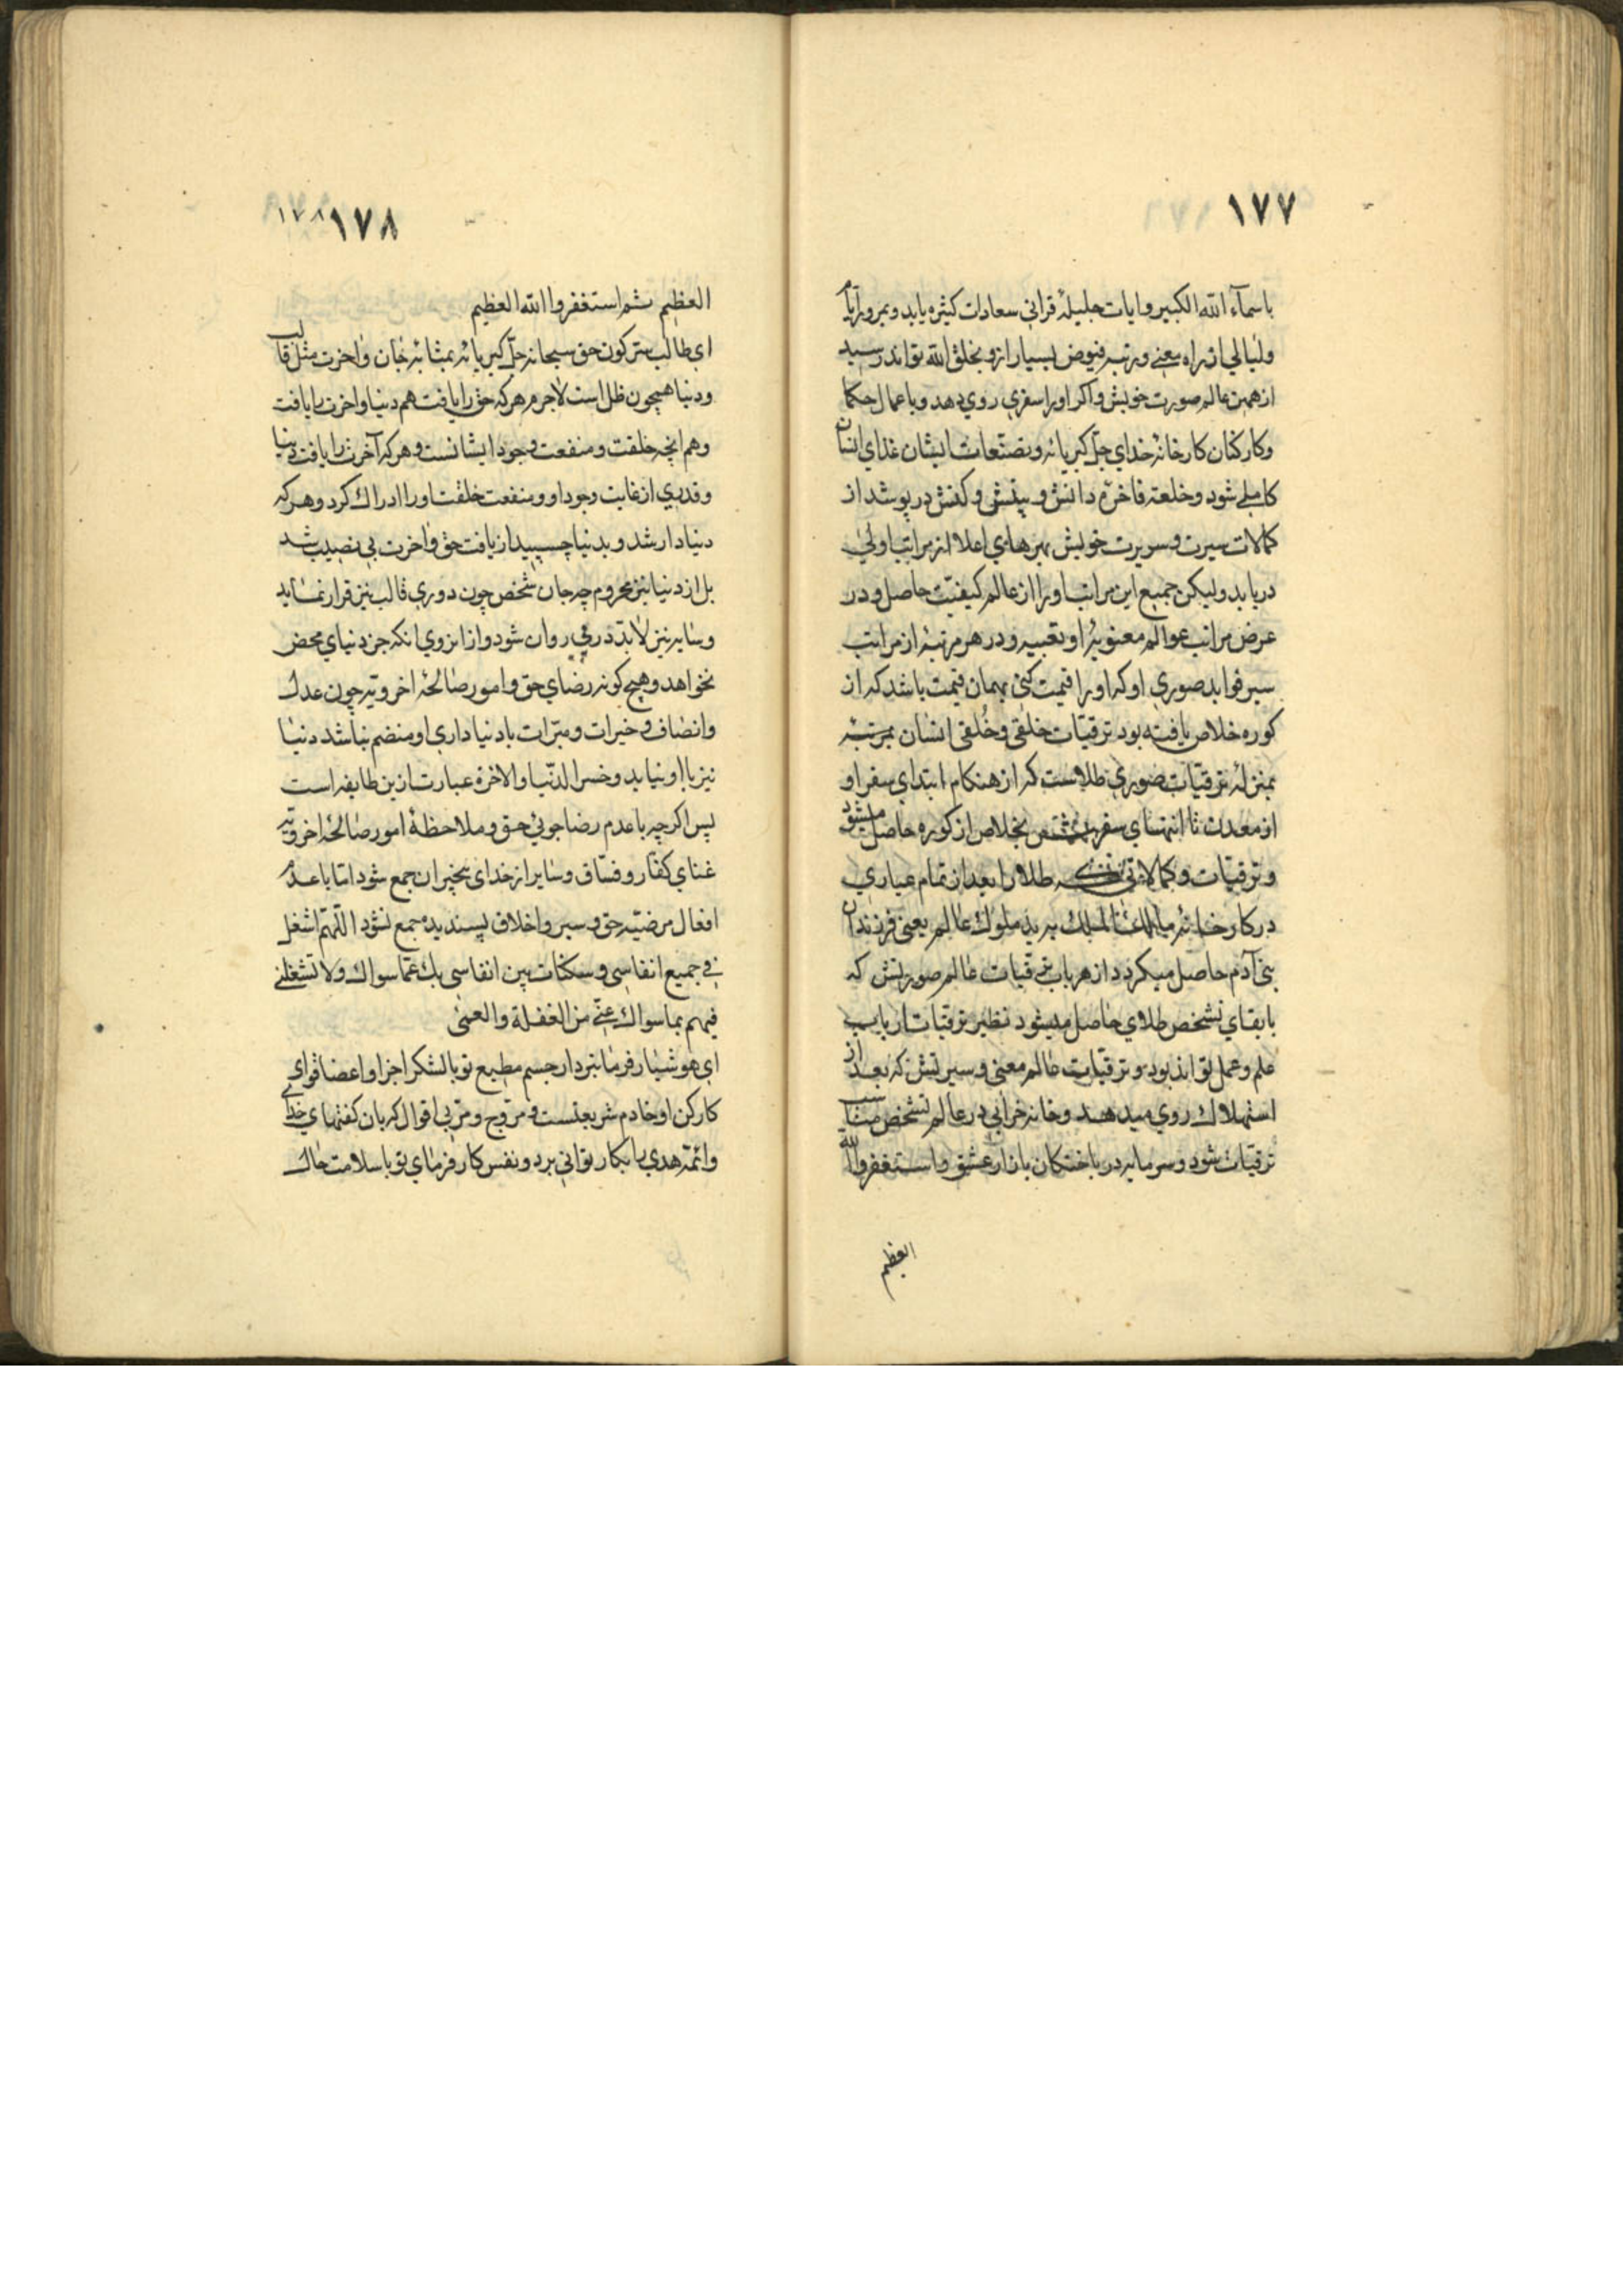 ١٧٧
باسمآء الله الکبیر و ایات جلیلۀ قرانی سعادات کثیره یابد و بمرور ایام
ولیالی از راه معنی و رتبه فیوض بسیار ازو بخلق الله تواند رسید
از همین عالم صورت خویش و اکر اورا سفری روی دهد و باعمال حکما
وکارکنان کارخانۀ خدای جلّ کبریائه و بتصنّعات ایشان غذای انسان
کاملی شود و خلعت فاخرۀ دانش و بینش و کنش در پوشد از
کمالات سیرت و سریرت خویش بهرهای اعلا از مراتب اولی
دریابد ولیکن جمیع این مراتب اورا از عالم کیفیّت حاصل و در
عرض مراتب عوالم معنویۀ او تعبیه و در هر مرتبۀ از مراتب
سیر فواید صوری او که اورا قیمت کنی بهمان قیمت باشد که از
کوره خلاص یافته بود ترقیّات خلقی و خُلقی انسان بمرتبۀ
بمنزلۀ ترقیّات صوری طلاست که از هنکام ابتدای سفر او
از معدن تا انتهای سفر بخلاص از کوره حاصل میشود
و ترقیّات و کمالاتی طلا را بعد از تمام عیاری
در کارخانۀ ملوک عالم یعنی فرزندان
بنی آدم حاصل میکردد از هر باب ترقیات عالم صورتش که
بابقای تشخص طلای حاصل میشود نظیر ترقیات ارباب
علم و عمل تواند بود و ترقیات عالم معنی و سیرتش که بعد از
استهلاک روی میدهد و خانه خرابی در عالم تشخص مناسب
ترقیات شود و سرمایه در باختکان بازار عشق و استغفروا الله
العظیم
١٧٨ ١٧٨
العظیم ثم استغفروا الله العظیم
ای طالب سّر کون حق سبحانه جلّ کبریائه بمثابۀ جان و اخرت مثل قالب
و دنیا همچون ظل است لاجرم هرکه حق را یافت هم دنیا و اخرت را یافت
وهم انچه خلقت و منفعت وجود ایشانست و هرکه آخرت را یافت دنیا
و قدری از غایت وجود او و منفعت خلقت اورا ادراک کرد و هرکه
دنیادار شد و بدنیا چسپید از یافت حق و اخرت بی نصیب شد
بل از دنیا نیز محروم چه جان شخص چون دوری قالب نیز قرار نماید
و سایه نیز لابد در پی روان شود و از انروی انکه جز دنیای محض
نخواهد و هیچ کونه رضای حق و امور صالحۀ اخرویّه چون عدل
وانصاف و خیرات و مبرّات با دنیاداری او منضم نباشد دنیا
نیز با او نیاید و خسر الدنیا و الاخرة عبارت ازین طایفه است
پس اکرچه با عدم رضا جوئی حق و ملاحظۀ امور صالحۀ اخرویّه
غنای کفّار و فسّاق و سایر از خدای بیخبران جمع شود امّا با عدم
افعال مرضیّه حق و سیر و اخلاق پسندیده جمع نشود اللّهمّ اشغل
فی جمیع انفاسی و سکنات بین انفاسی بک عمّا سواک ولا تشغلنی
فیهم بما سواک عنّی من الغفلة والعمی
ای هوشیار فرمانبردار جسم مطیع تو بالشکر اجزا و اعضا قوای
کارکن او خادم شریعتست و مروّج و مربّی اقوال که بان کفتهای خدای
وائمّۀ هدی را بکار توانی برد و نفس کارفرمای تو باسلامت حال